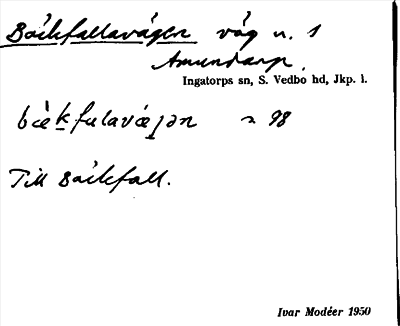 Bäckfallavägen väg n. 1
Amundarp.
Ingatorps sn, S. Vedbo hd, Jkp. l.
98
Till Bäckfall.
Ivar Modéer 1950